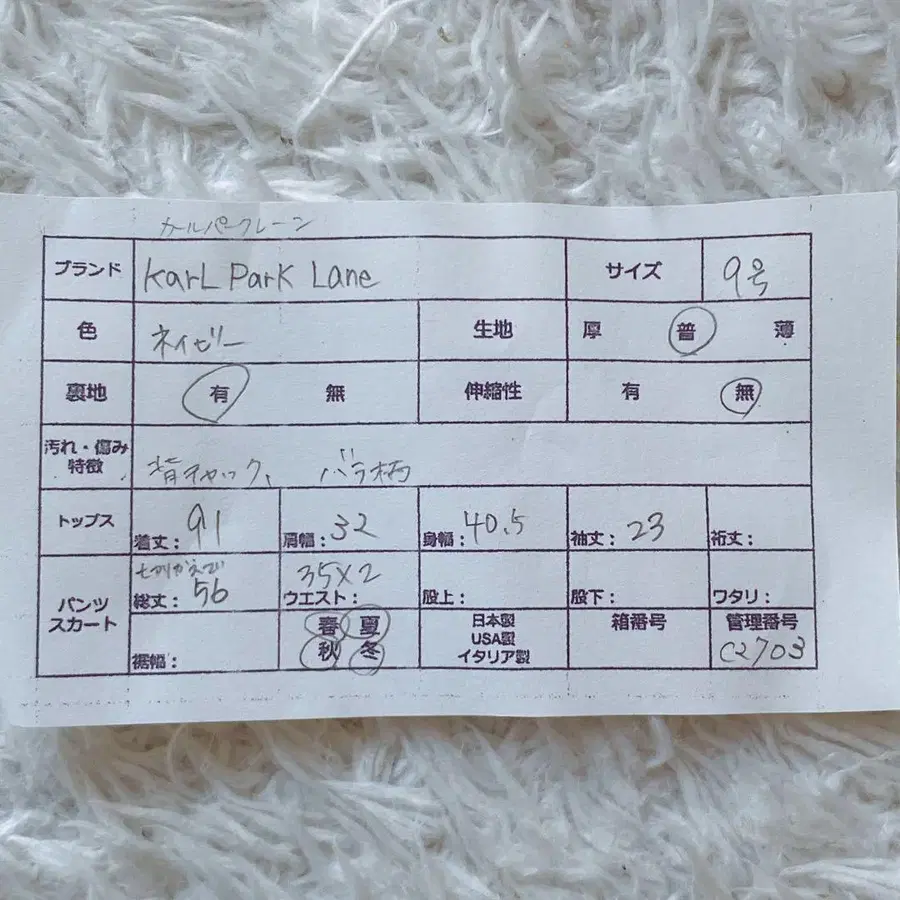 カールパークレーン
ブランド KarL ParK Lane サイズ 9号
色 ネイビー 生地 厚 普 薄
裏地 有 無 伸縮性 有 無
汚れ・傷み
特徴 背チャック、 バラ柄
トップス 着丈: 91 肩幅: 32 身幅: 40.5 袖丈: 23 裄丈:
切りかえで 35×2
パンツ
スカート 総丈: 56 ウエスト: 股上: 股下: ワタリ:
裾幅: 春 夏
秋 冬
日本製
USA製
イタリア製
箱番号 管理番号
C2703